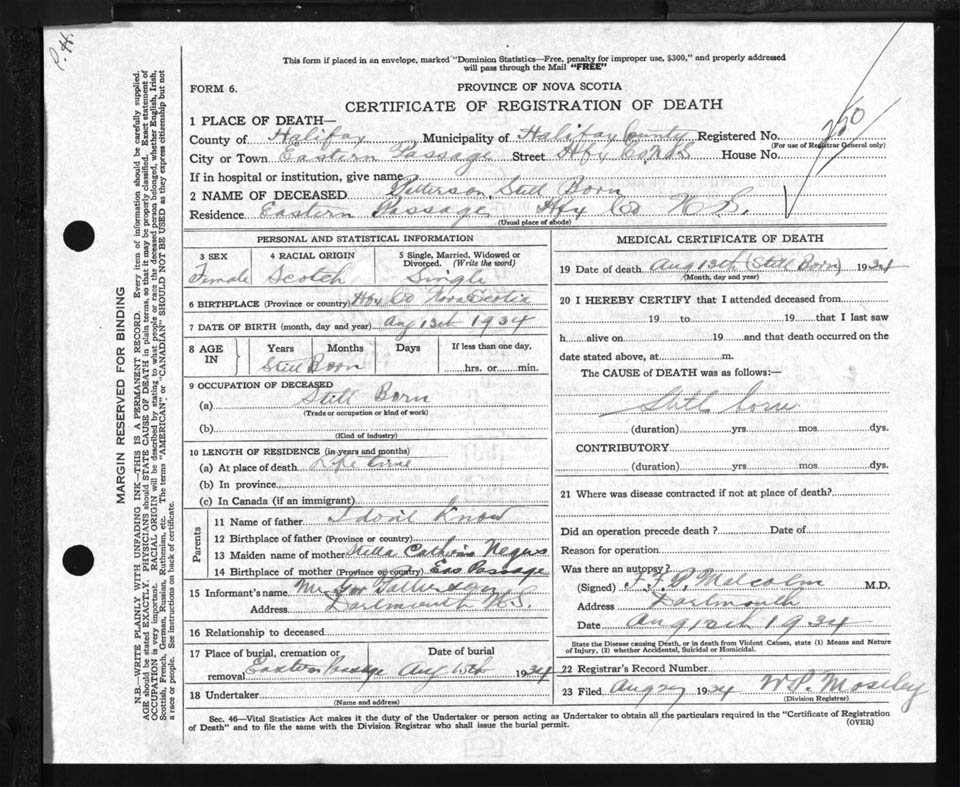 P.H.
This form if placed in an envelope, marked "Dominion Statistics—Free, penalty for improper use, $300," and properly addressed
will pass through the Mail "FREE"
FORM 6.
PROVINCE OF NOVA SCOTIA
CERTIFICATE OF REGISTRATION OF DEATH
1 PLACE OF DEATH—
County of Halifax Municipality of Halifax County Registered No. 250
(For use of Registrar General only)
City or Town Eastern Passage Street Hfx Co N S House No.
If in hospital or institution, give name
2 NAME OF DECEASED Petterson Still Born
Residence Eastern Passage Hfx Co N S.
(Usual place of abode)
PERSONAL AND STATISTICAL INFORMATION
3 SEX 4 RACIAL ORIGIN 5 Single, Married, Widowed or
Divorced. (Write the word)
Female Scotch Single
6 BIRTHPLACE (Province or country) Hfx Co Nova Scotia
7 DATE OF BIRTH (month, day and year) Aug 13th 1934
8 AGE IN Years Months Days If less than one day,
Still Born hrs. or min.
9 OCCUPATION OF DECEASED
(a) Still Born
(Trade or occupation or kind of work)
(b)
(Kind of industry)
10 LENGTH OF RESIDENCE (in years and months)
(a) At place of death Life time
(b) In province
(c) In Canada (if an immigrant)
Parents
11 Name of father I don't Know
12 Birthplace of father (Province or country)
13 Maiden name of mother Stella Negus
14 Birthplace of mother (Province or country) Eas Passage
15 Informant's name
Address Dartmouth N.S.
16 Relationship to deceased
17 Place of burial, cremation or removal Date of burial
Eastern Passage Aug 15th 1934
18 Undertaker
(Name and address)
MEDICAL CERTIFICATE OF DEATH
19 Date of death Aug 13th (Still Born) 1934
(Month, day and year)
20 I HEREBY CERTIFY that I attended deceased from
19 to 19 that I last saw
h alive on 19 and that death occurred on the
date stated above, at m.
The CAUSE of DEATH was as follows:—
Still born
(duration) yrs mos dys.
CONTRIBUTORY
(duration) yrs mos dys.
21 Where was disease contracted if not at place of death?
Did an operation precede death ? Date of
Reason for operation
Was there an autopsy?
(Signed) Malcolm M.D.
Address Dartmouth
Date Aug 13th 1934
State the Disease causing Death, or in death from Violent Causes, state (1) Means and Nature
of Injury, (2) whether Accidental, Suicidal or Homicidal.
22 Registrar's Record Number
23 Filed Aug 1934 W P. Moseley
(Division Registrar)
Sec. 46—Vital Statistics Act makes it the duty of the Undertaker or person acting as Undertaker to obtain all the particulars required in the "Certificate of Registration
of Death" and to file the same with the Division Registrar who shall issue the burial permit.
(OVER)
MARGIN RESERVED FOR BINDING
N.B.—WRITE PLAINLY WITH UNFADING INK—THIS IS A PERMANENT RECORD. Every item of information should be carefully supplied.
AGE should be stated EXACTLY. PHYSICIANS should STATE CAUSE OF DEATH in plain terms, so that it may be properly classified. Exact statement of
OCCUPATION is very important. RACIAL ORIGIN will be described by stating to what people or race the deceased person belonged, whether English, Irish,
Scottish, French, German, Russian, Ruthenian, etc. The terms "AMERICAN" or "CANADIAN" SHOULD NOT BE USED as they express citizenship but not
a race or people. See instructions on back of certificate.